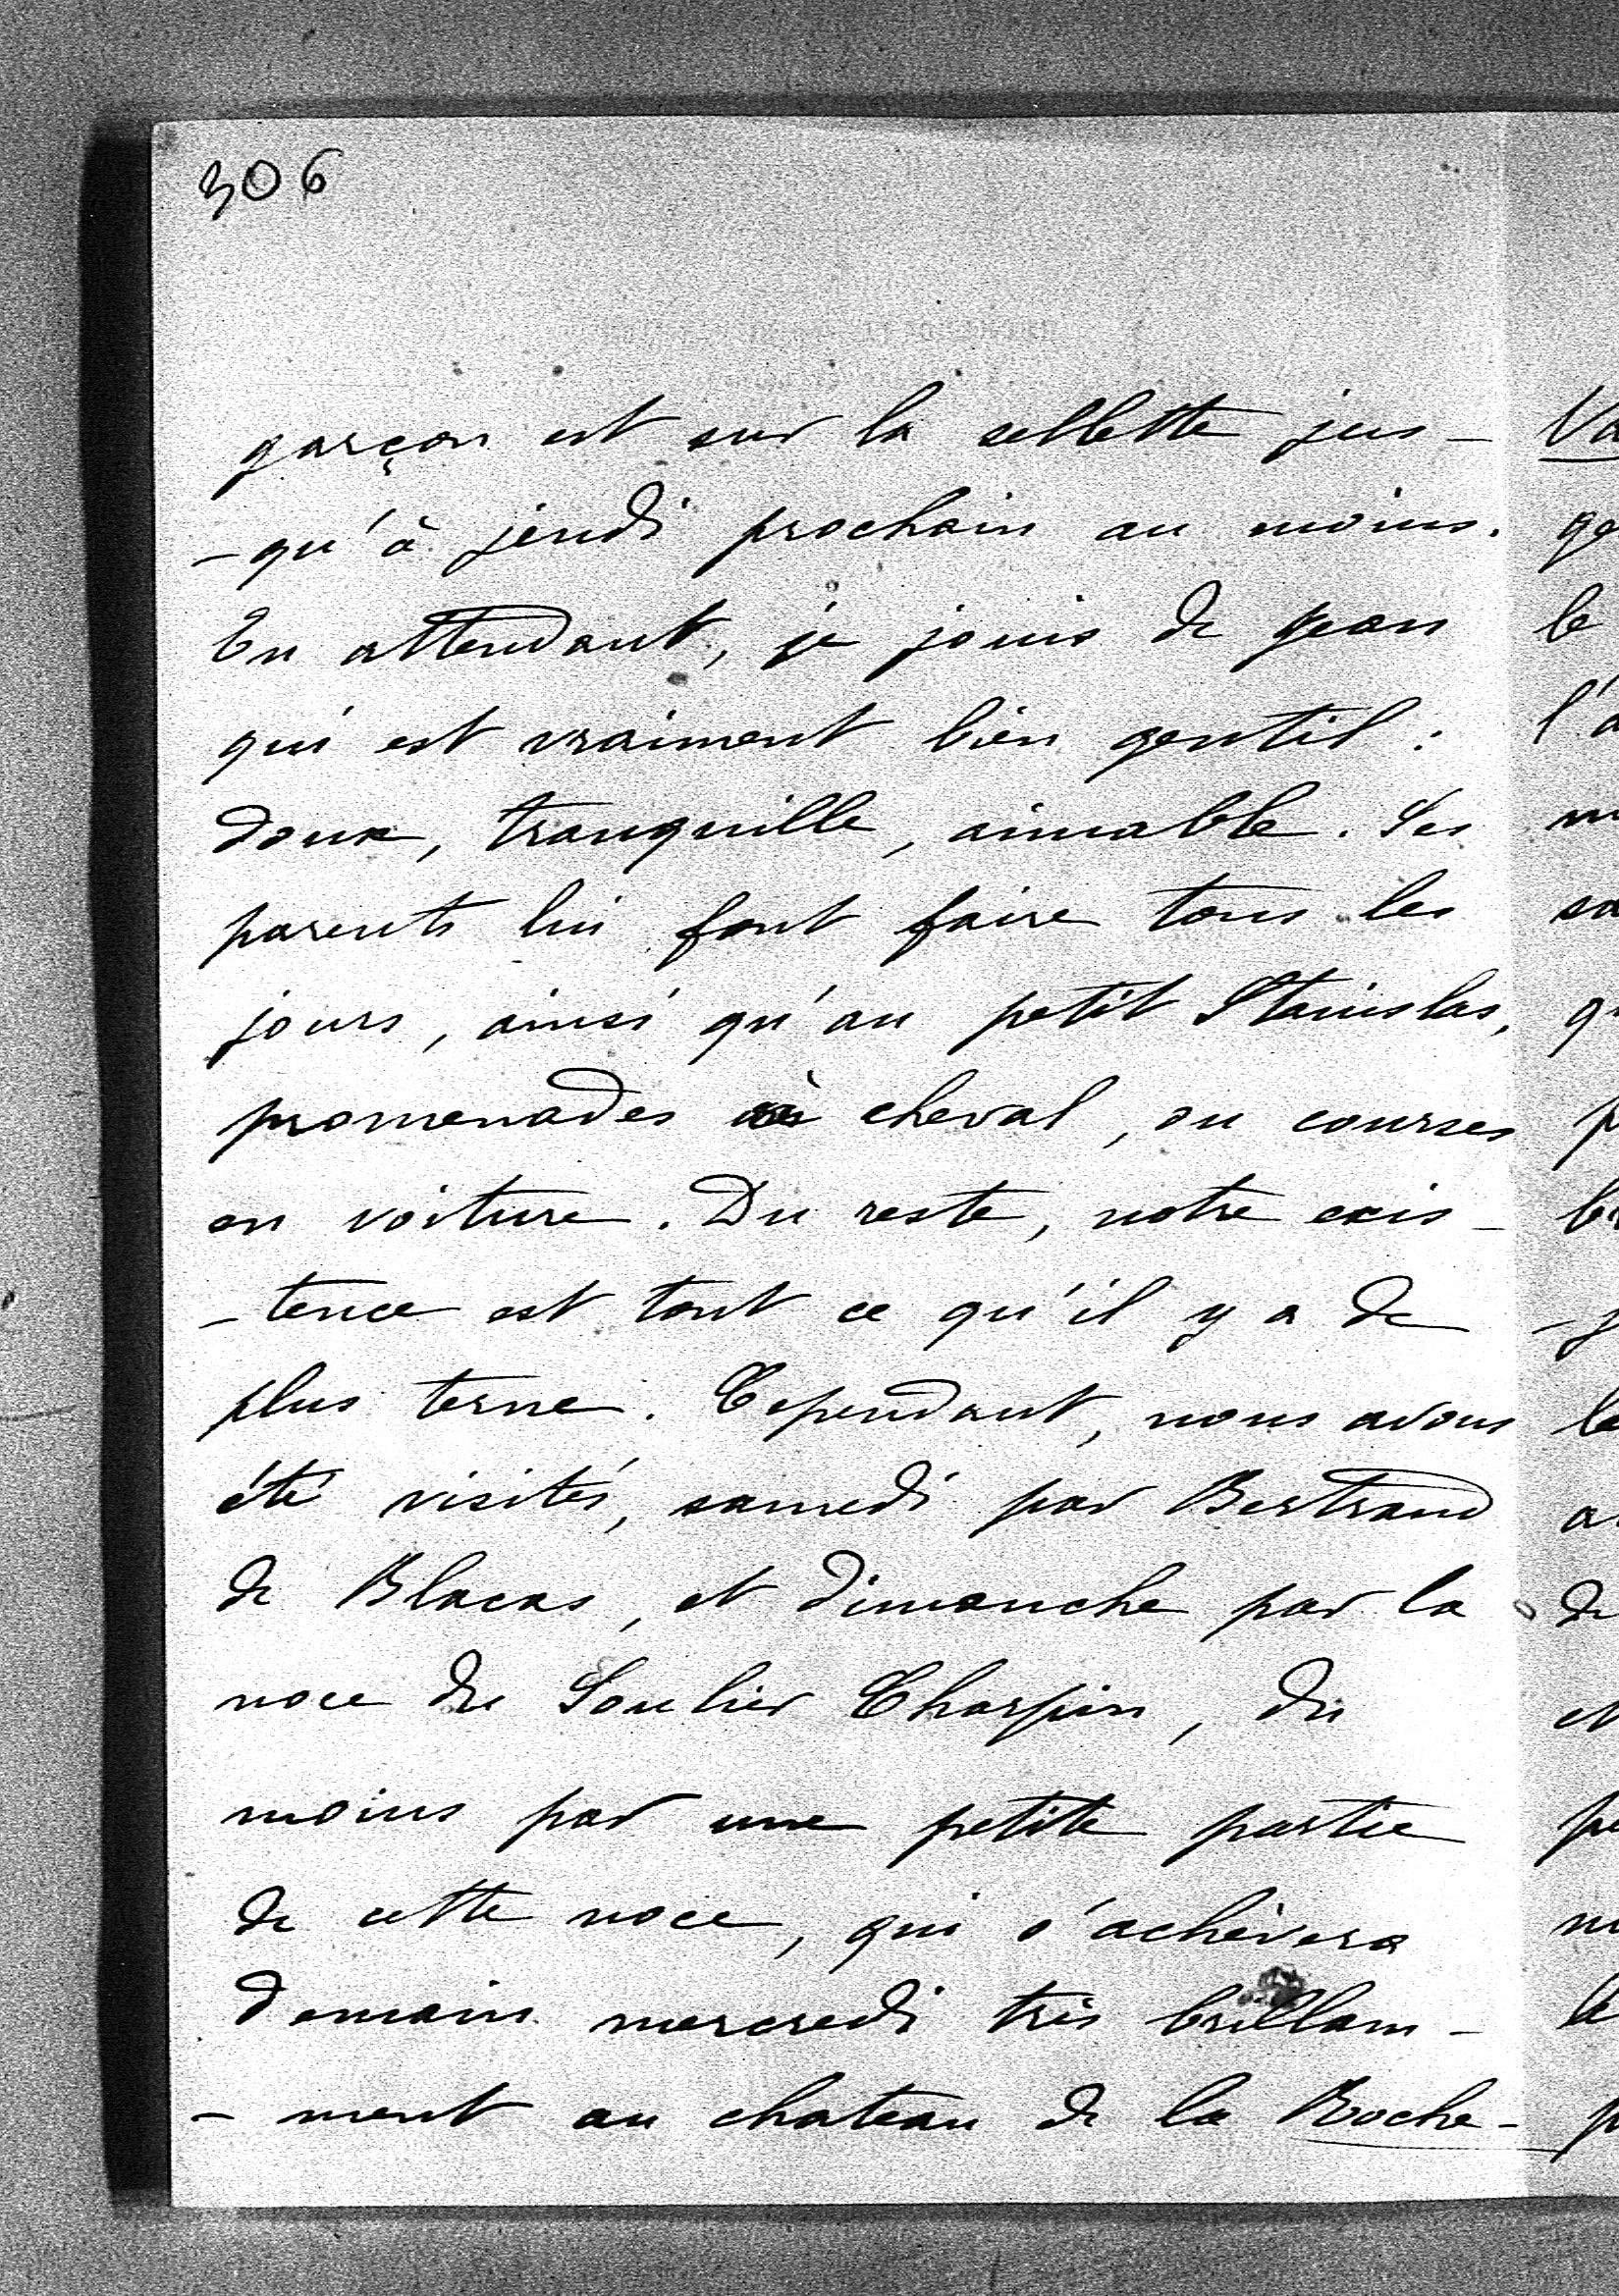 306
garçon est sur la sellette jus-
-qu'à jeudi prochain au moins.
En attendant, je jouis de Jean
qui est vraiment bien gentil :
doux, tranquille, aimable. Ses
parents lui font faire tous les
jours, ainsi qu'au petit Stanislas,
promenades à cheval, ou courses
en voiture. Du reste, notre exis-
-tence est tout ce qu'il y a de
plus terne. Cependant, nous avons
été visités, samedi par Bertrand
de Blacas, et dimanche par la
noce du Soulier Charpin, du
moins par une petite partie
de cette noce, qui s'achèvera
demain mercredi très brillam-
-ment au chateau de la Roche-